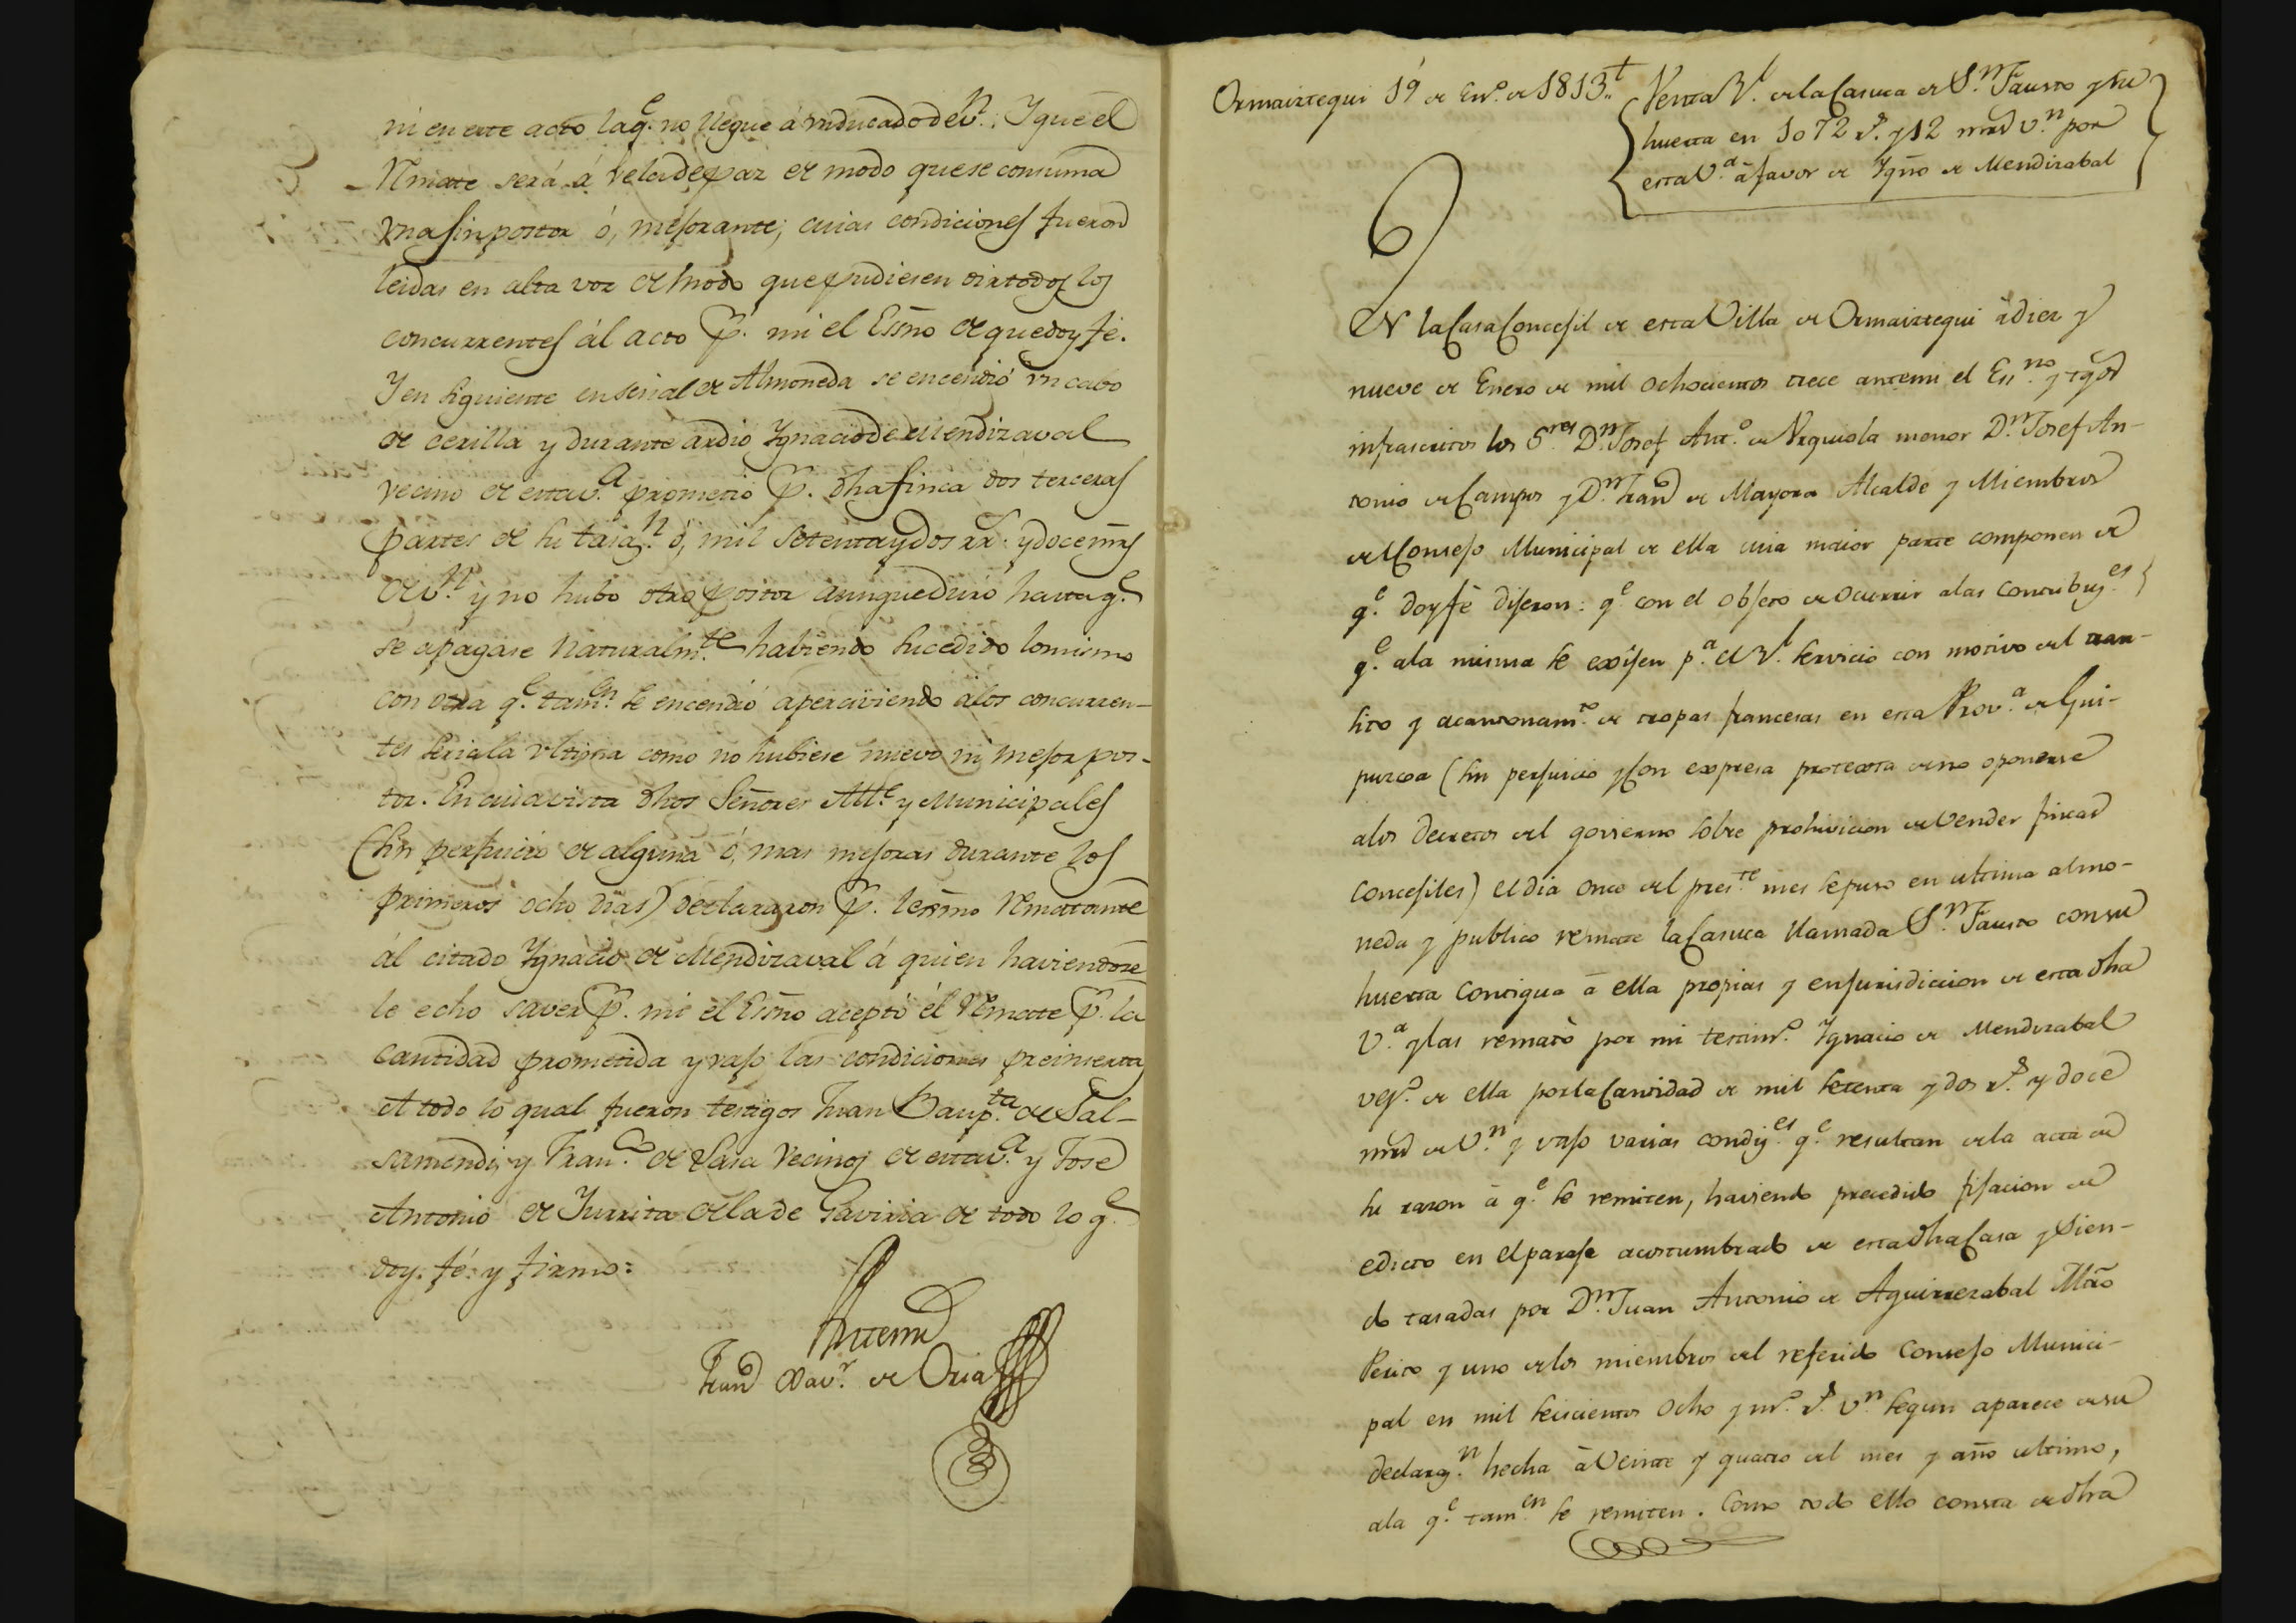 ni en este acto la q.e no llegue á un ducado de v.n: Y que el
Rmate será á vela de par de modo que se consuma
una sin postor ó, mejorante; cuias condiciones fueron
leidas en alta voz de modo que pudiesen oir todos los
concurrentes ál acto p.r mi el Essno de que doy fe.
Y en siguiente en señal de Almoneda se encendió un cabo
de cerilla y durante ardio Ygnacio de Mendizaval
vecino de esta v.a prometió p.r dha finca dos terceras
partes de su tasa.n ó, mil setenta y dos rr.s y doce mrs
de v.n y no hubo otro postor aunque duró hasta q.e
se apagase naturalm.te habiendo sucedido lo mismo
con otra q.e tam.en se encendió aperciviendo á los concurren-
tes seria la ultima como no hubiese nuevo ni mejor pos-
tor. En cuia vista dhos Señores Alt.e y Municipales
(sin perjuicio de alguna ó, mas mejoras durante los
primeros ocho dias) declararon p.r lexmo Rmatante
ál citado Ygnacio de Mendizaval á quien haviendose
le echo saver p.r mi el Essno aceptó él Rmate p.r la
cantidad prometida y vajo las condiciones preinsertas
de todo lo qual fueron testigos Juan Baup.ta de Sal-
samendi, y Fran.co de Sasa vecinos de esta v.a y Jose
Antonio de Yurrita de la de Gaviria de todo lo q.e
doy fé: y firmo:
Antemi
Fran.co Xav.r de Oria
Ormaiztegui 19 de En.o de 1813.. Venta R.l de la Casuca de S.n Fausto y su
huerta en 1072 r.s y 12 mrs v.n por
esta V.a á favor de Ygn̄o de Mendizabal
EN la Casa Concejil de esta Villa de Ormaiztegui á diez y
nueve de Enero de mil ochocientos trece antemi el Ess.no y tgos
infrascritos los S.res D.n Josef Ant.o de Urquiola menor D.n Josef An-
tonio de Campos y D.n Fran.co de Mayora Alcalde y Miembros
del Consejo Municipal de ella cuia maior parte componen de
q.e doy fè dijeron: q.e con el objeto de ocurrir a las contribuy.es
q.e ala misma se exijen p.a el R.l servicio con motivo del tran-
sito y acantonam.to de tropas francesas en esta Prov.a de Gui-
puzcoa (sin perjuicio y con expresa protexta de no oponerse
alos decretos del govierno sobre prohivicion de vender fincas
concejiles) el dia once del pres.te mes se puso en ultima almo-
neda y publico remate la Casuca llamada S.n Fausto con su
huerta contigua á ella propias y en jurisdiccion de esta dha
V.a y las remató por mi testim.o Ygnacio de Mendizabal
vez.o de ella por la Cantidad de mil setenta y dos r.s y doce
mrs de V.n y vajo varias condiz.es q.e resultan de la acta de
su razon á q.e se remiten, haviendo precedido fijacion de
edicto en el paraje acostumbrado de esta dha Casa y Sien-
do tasadas por D.n Juan Antonio de Aguirrezabal Mt̄ro
Perito y uno de los miembros del referido Consejo Munici-
pal en mil seiscientos ocho y m.o r.s v.n segun aparece de su
declaraz.n hecha á Veinte y quatro del mes y año ultimo,
ala q.e tam.en se remiten. Como todo ello consta de dha